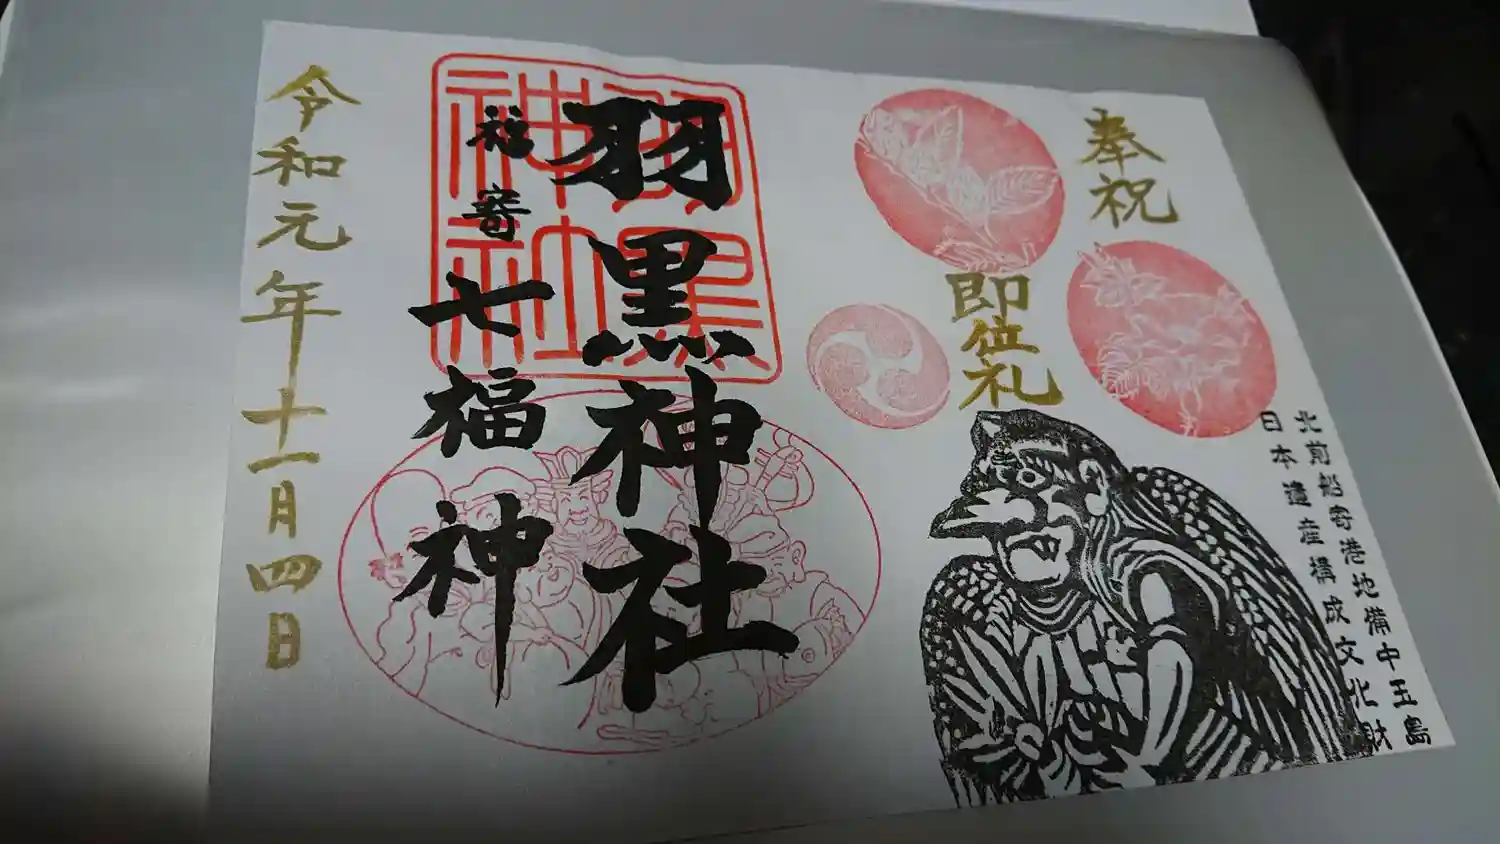 奉祝
即位礼
北前船寄港地備中玉島
日本遺産構成文化財
羽黒神社
羽黒神社
福寄
七福神
令和元年十一月四日